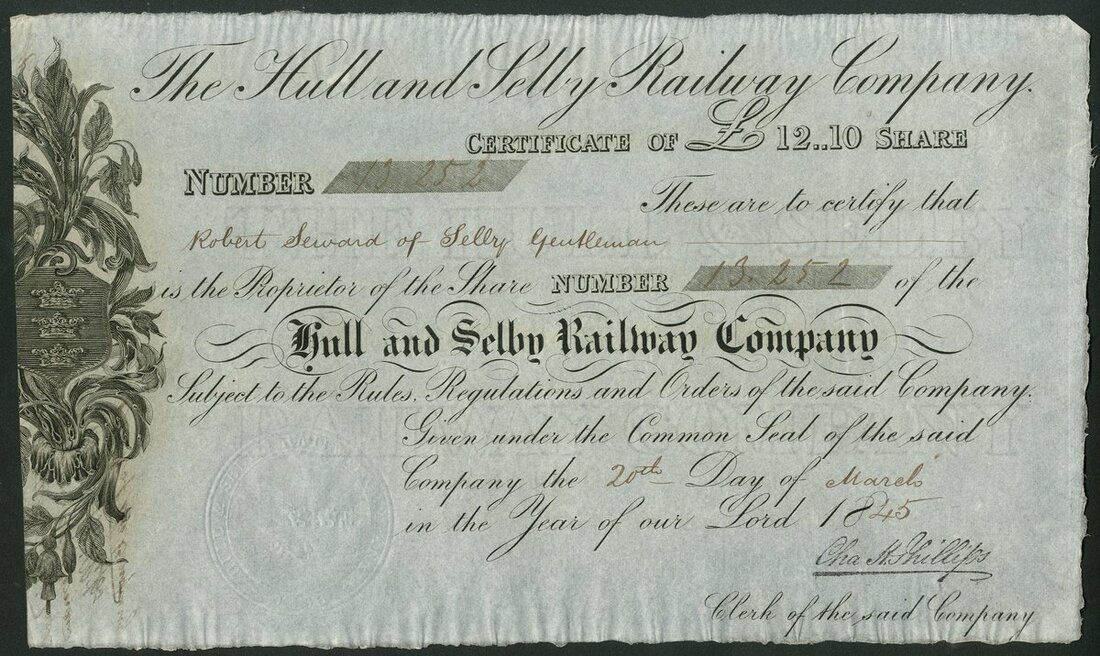 The Hull and Selby Railway Company.
CERTIFICATE OF £ 12..10 SHARE
NUMBER 13252
These are to certify that
Robert Seward of Selby Gentleman
is the Proprietor of the Share NUMBER 13.252 of the
Hull and Selby Railway Company
Subject to the Rules, Regulations and Orders of the said Company.
Given under the Common Seal of the said
Company the 20th Day of March
in the Year of our Lord 1845
Cha H Phillips
Clerk of the said Company